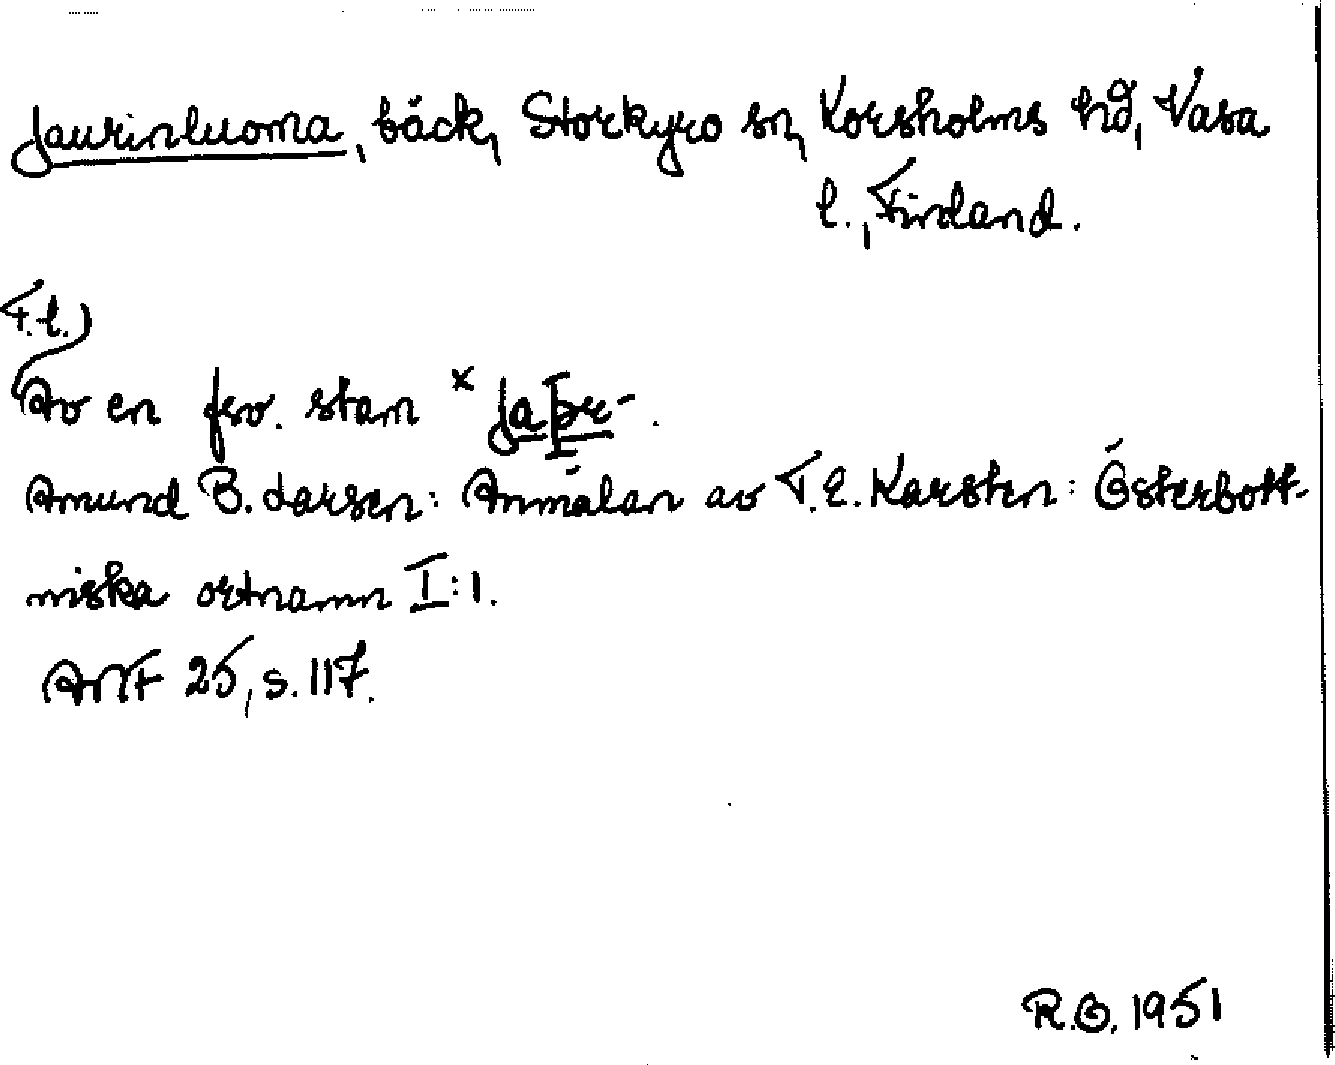 Jaurinluoma, bäck, Storkyro sn, Korsholms hd, Vasa
l., Finland.
F.l.)
Av en frv. stam × Japr-.
Amund B. Larsen: Anmälan av T.E. Karsten: Österbott-
niska ortnamn I:1.
ANF 25, s. 117.
R.O. 1951